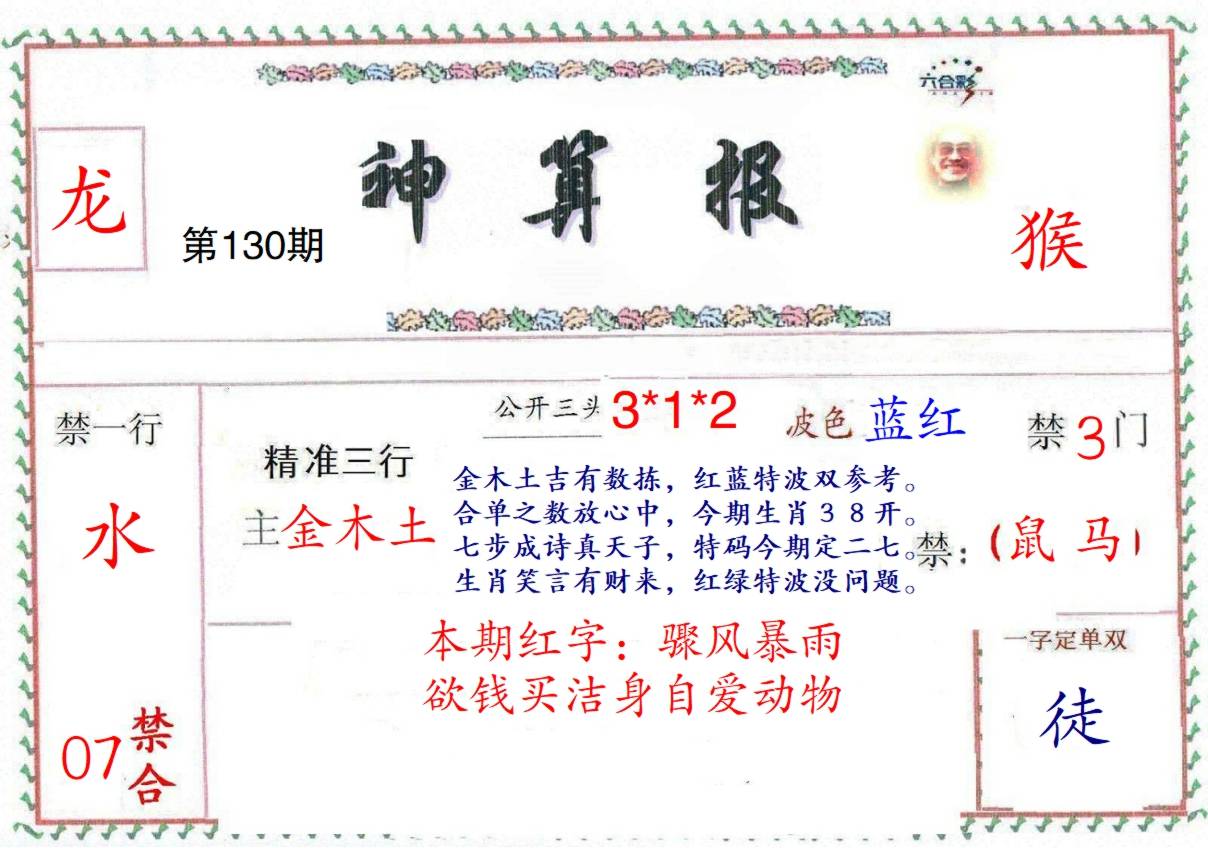 六合彩
神算报
龙
第130期
猴
禁一行
水
07
禁合
公开三头 3*1*2
波色 蓝红
禁3门
精准三行
主金木土
金木土吉有数拣，红蓝特波双参考。
合单之数放心中，今期生肖３８开。
七步成诗真天子，特码今期定二七。
生肖笑言有财来，红绿特波没问题。
禁：（鼠 马）
本期红字：骤风暴雨
欲钱买洁身自爱动物
一字定单双
徒